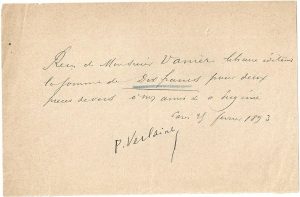 Reçu de Monsieur Vanier libraire éditeur
la somme de dix francs pour deux
pièces de vers à mes amis & à
Paris 25 février 1893
P. Verlaine